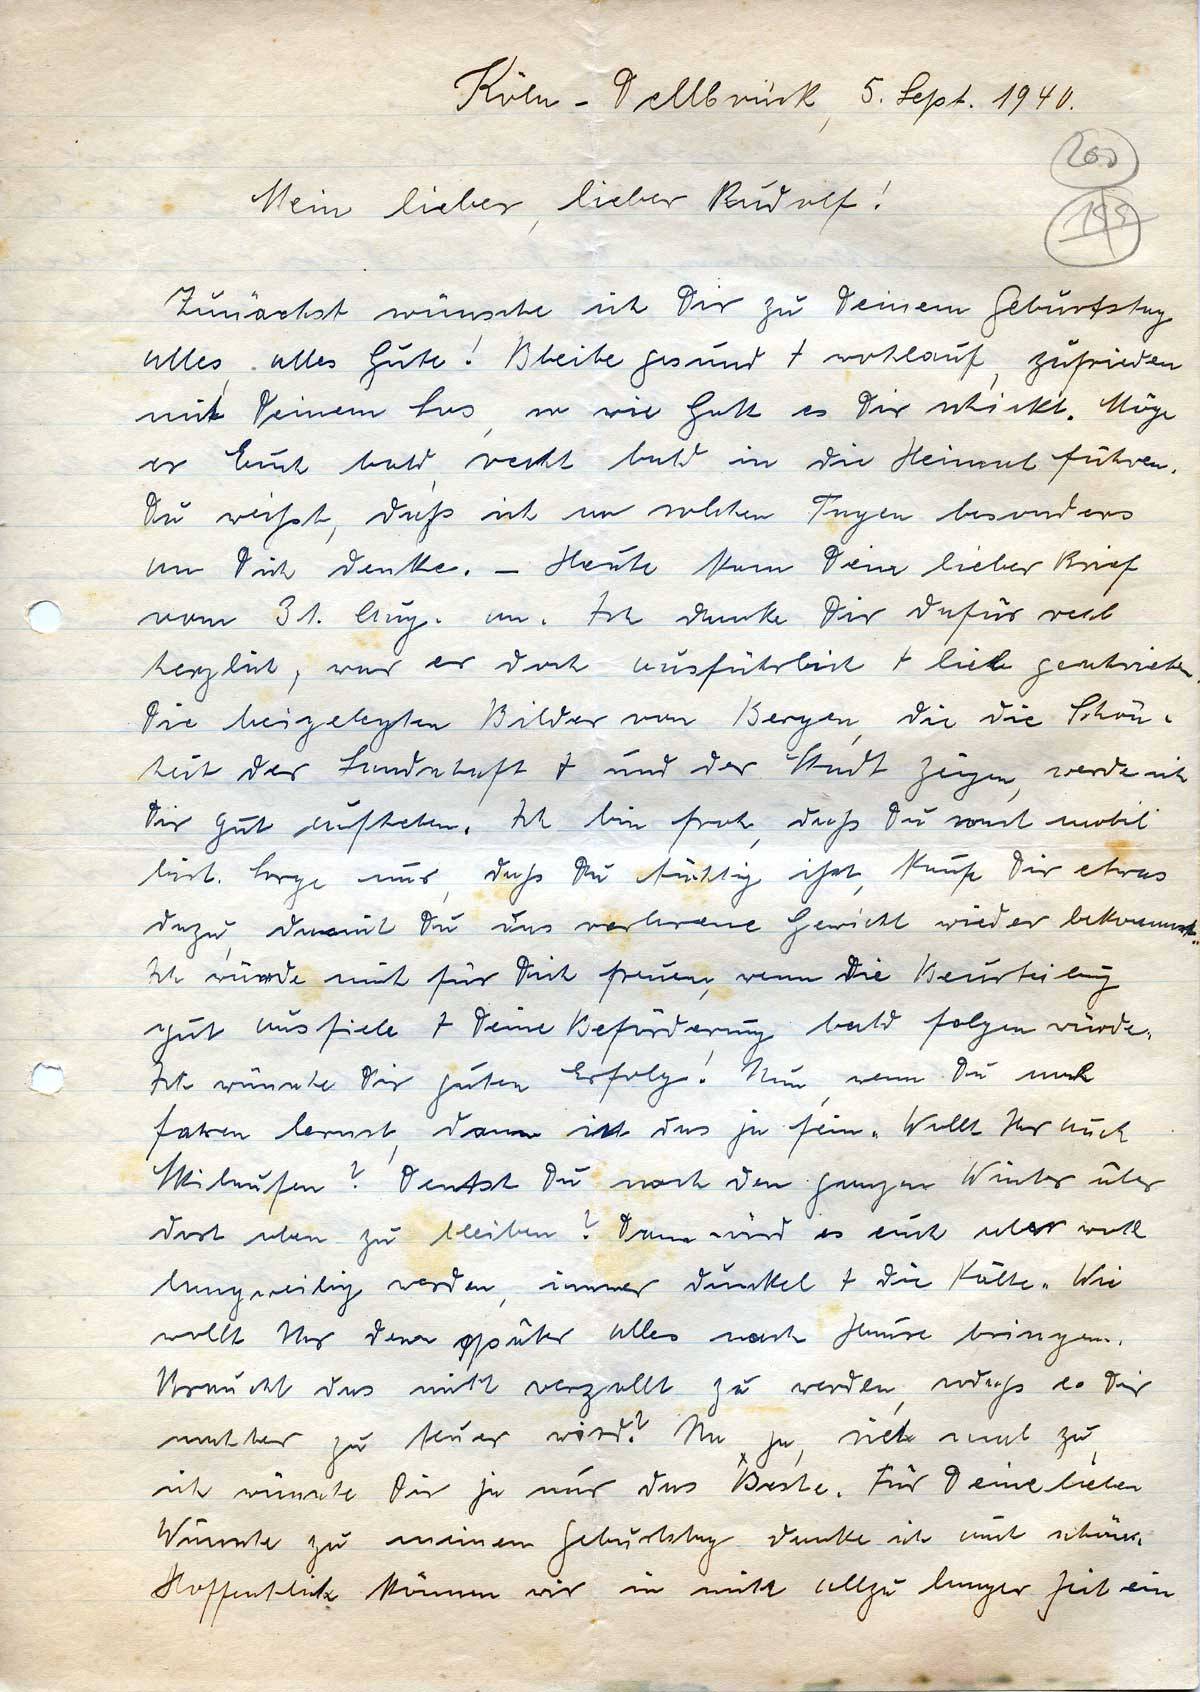 Köln - Dellbrück, 5. Sept. 1940.
200
Mein lieber, lieber Rudolf!
Zunächst wünsche ich Dir zu Deinem Geburtstag
alles, alles Gute! Bleibe gesund + wohlauf, zufrieden
mit Deinem Los, so wie Gott es Dir schickt. Möge
er Euch bald, recht bald in die Heimat führen.
Du weißt, daß ich an solchen Tagen besonders
an Dich denke. – Heute kam Dein lieber Brief
vom 31. Aug. an. Ich danke Dir dafür recht
herzlich, war er doch ausführlich + lieb geschrieben.
Die beigelegten Bilder von Bergen, die die Schön-
heit der Landschaft + und der Stadt zeigen, werde ich
Dir gut aufheben. Ich bin froh, daß Du sonst mobil
bist. Sorge nur, daß Du tüchtig ißt, kauf Dir etwas
dazu, damit Du das verlorene Gewicht wieder bekommst.
Ich würde mich für Dich freuen, wenn die Beurteilung
gut ausfiele + Deine Beförderung bald folgen würde.
Ich wünsche Dir guten Erfolg! Nun, wenn Du noch
fahren lernst, dann ist das ja fein. Wollt Ihr auch
Skilaufen? Denkst Du noch den ganzen Winter über
dort oben zu bleiben? Dann wird es euch aber wohl
langweilig werden, immer dunkel + die Kälte. Wie
wollt Ihr denn später alles nach Hause bringen.
Braucht das nicht verzollt zu werden, sodaß es Dir
nachher zu teuer wird? Na ja, sieh mal zu,
ich wünsche Dir ja nur das Beste. Für Deine lieben
Wünsche zu meinem Geburtstag danke ich auch schön.
Hoffentlich können wir in nicht allzu langer Zeit ein